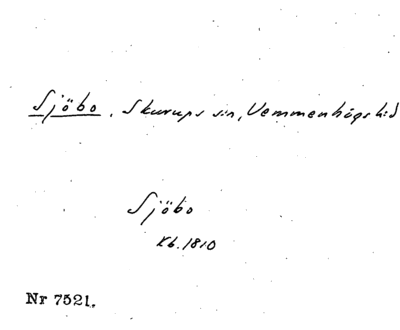 Sjöbo, Skurups sn, Vemmenhögs hd
Sjöbo
Kb. 1810
Nr 7521.